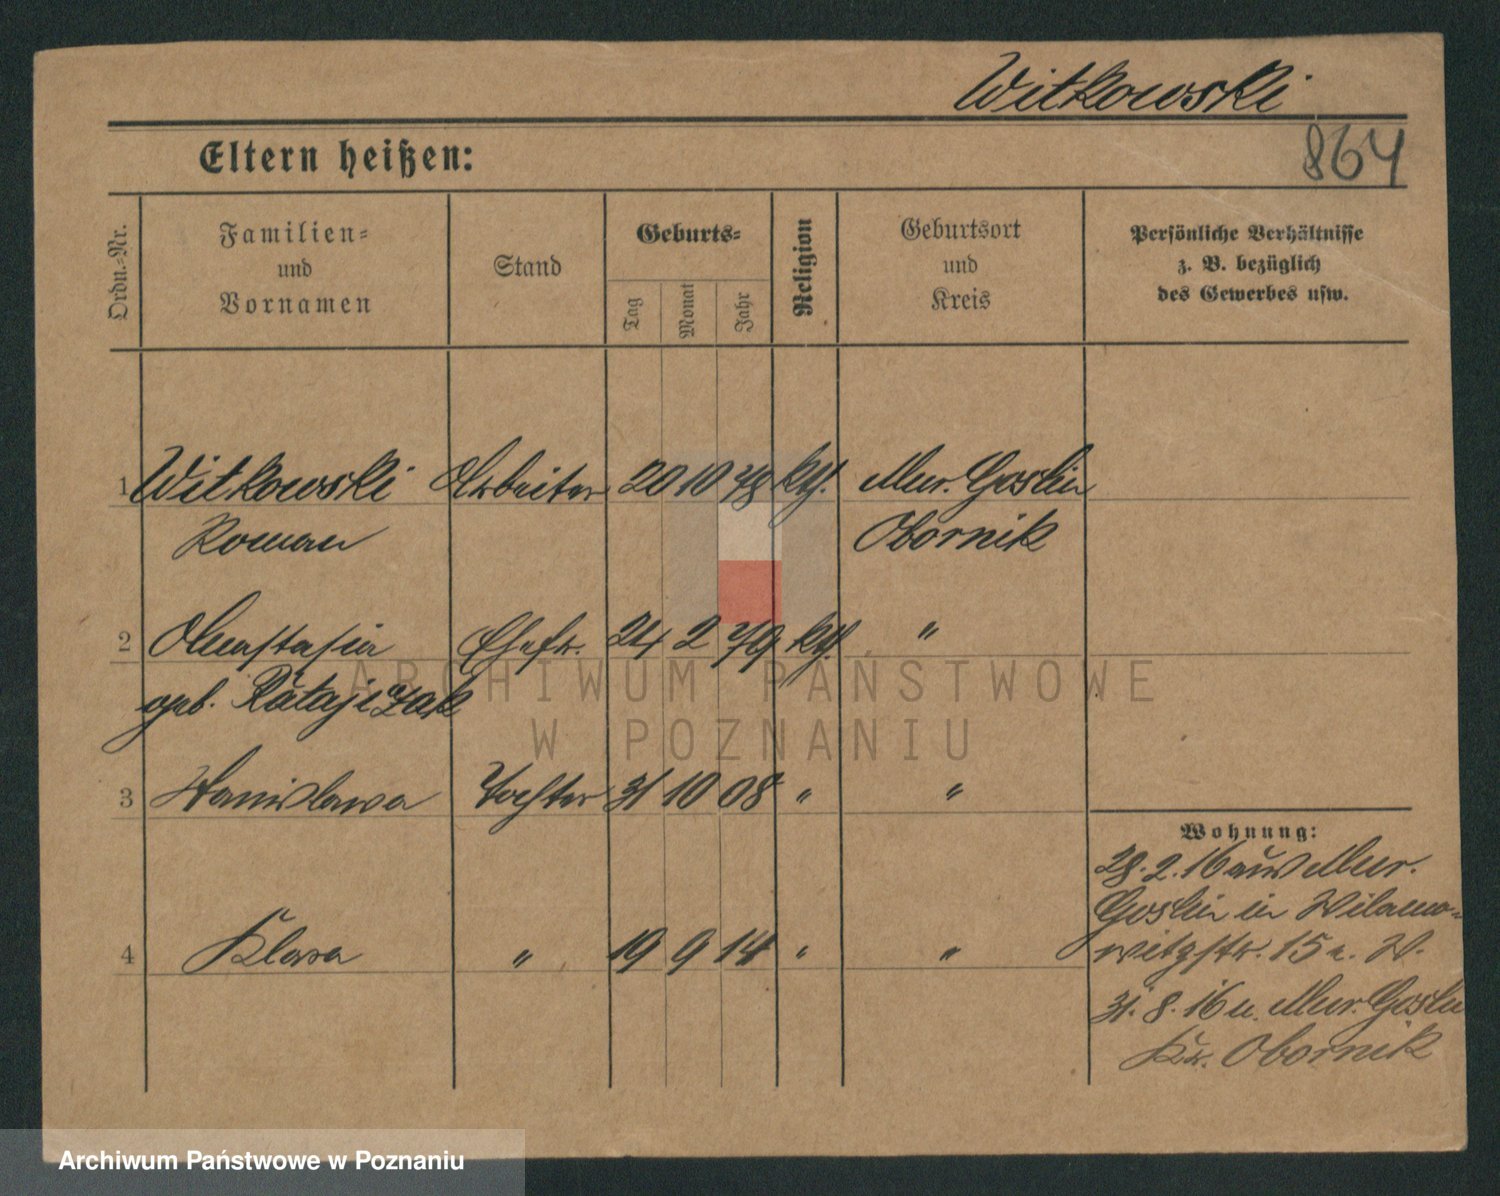 Witkowski
864
Eltern heißen:
Ordn.-Nr.
Familien-
und
Vornamen
Stand
Geburts-
Tag
Monat
Jahr
Religion
Geburtsort
und
Kreis
Persönliche Verhältnisse
z. B. bezüglich
des Gewerbes usw.
1 Witkowski Arbeiter 20 10 78 kth. Mur. Goslin
Roman Obornik
2 Anastasia Ehefr. 24 2 79 kth. "
geb. Ratajczak
3 Stanislawa Tochter 31 10 08 " "
4 Klara " 19 9 14 " "
Wohnung:
28. 2. 16 aus Mur.
Goslin in Wilamo-
witzstr. 15
31. 8. 16 n. Mur. Goslin
Kr. Obornik
ARCHIWUM PAŃSTWOWE
W POZNANIU
Archiwum Państwowe w Poznaniu